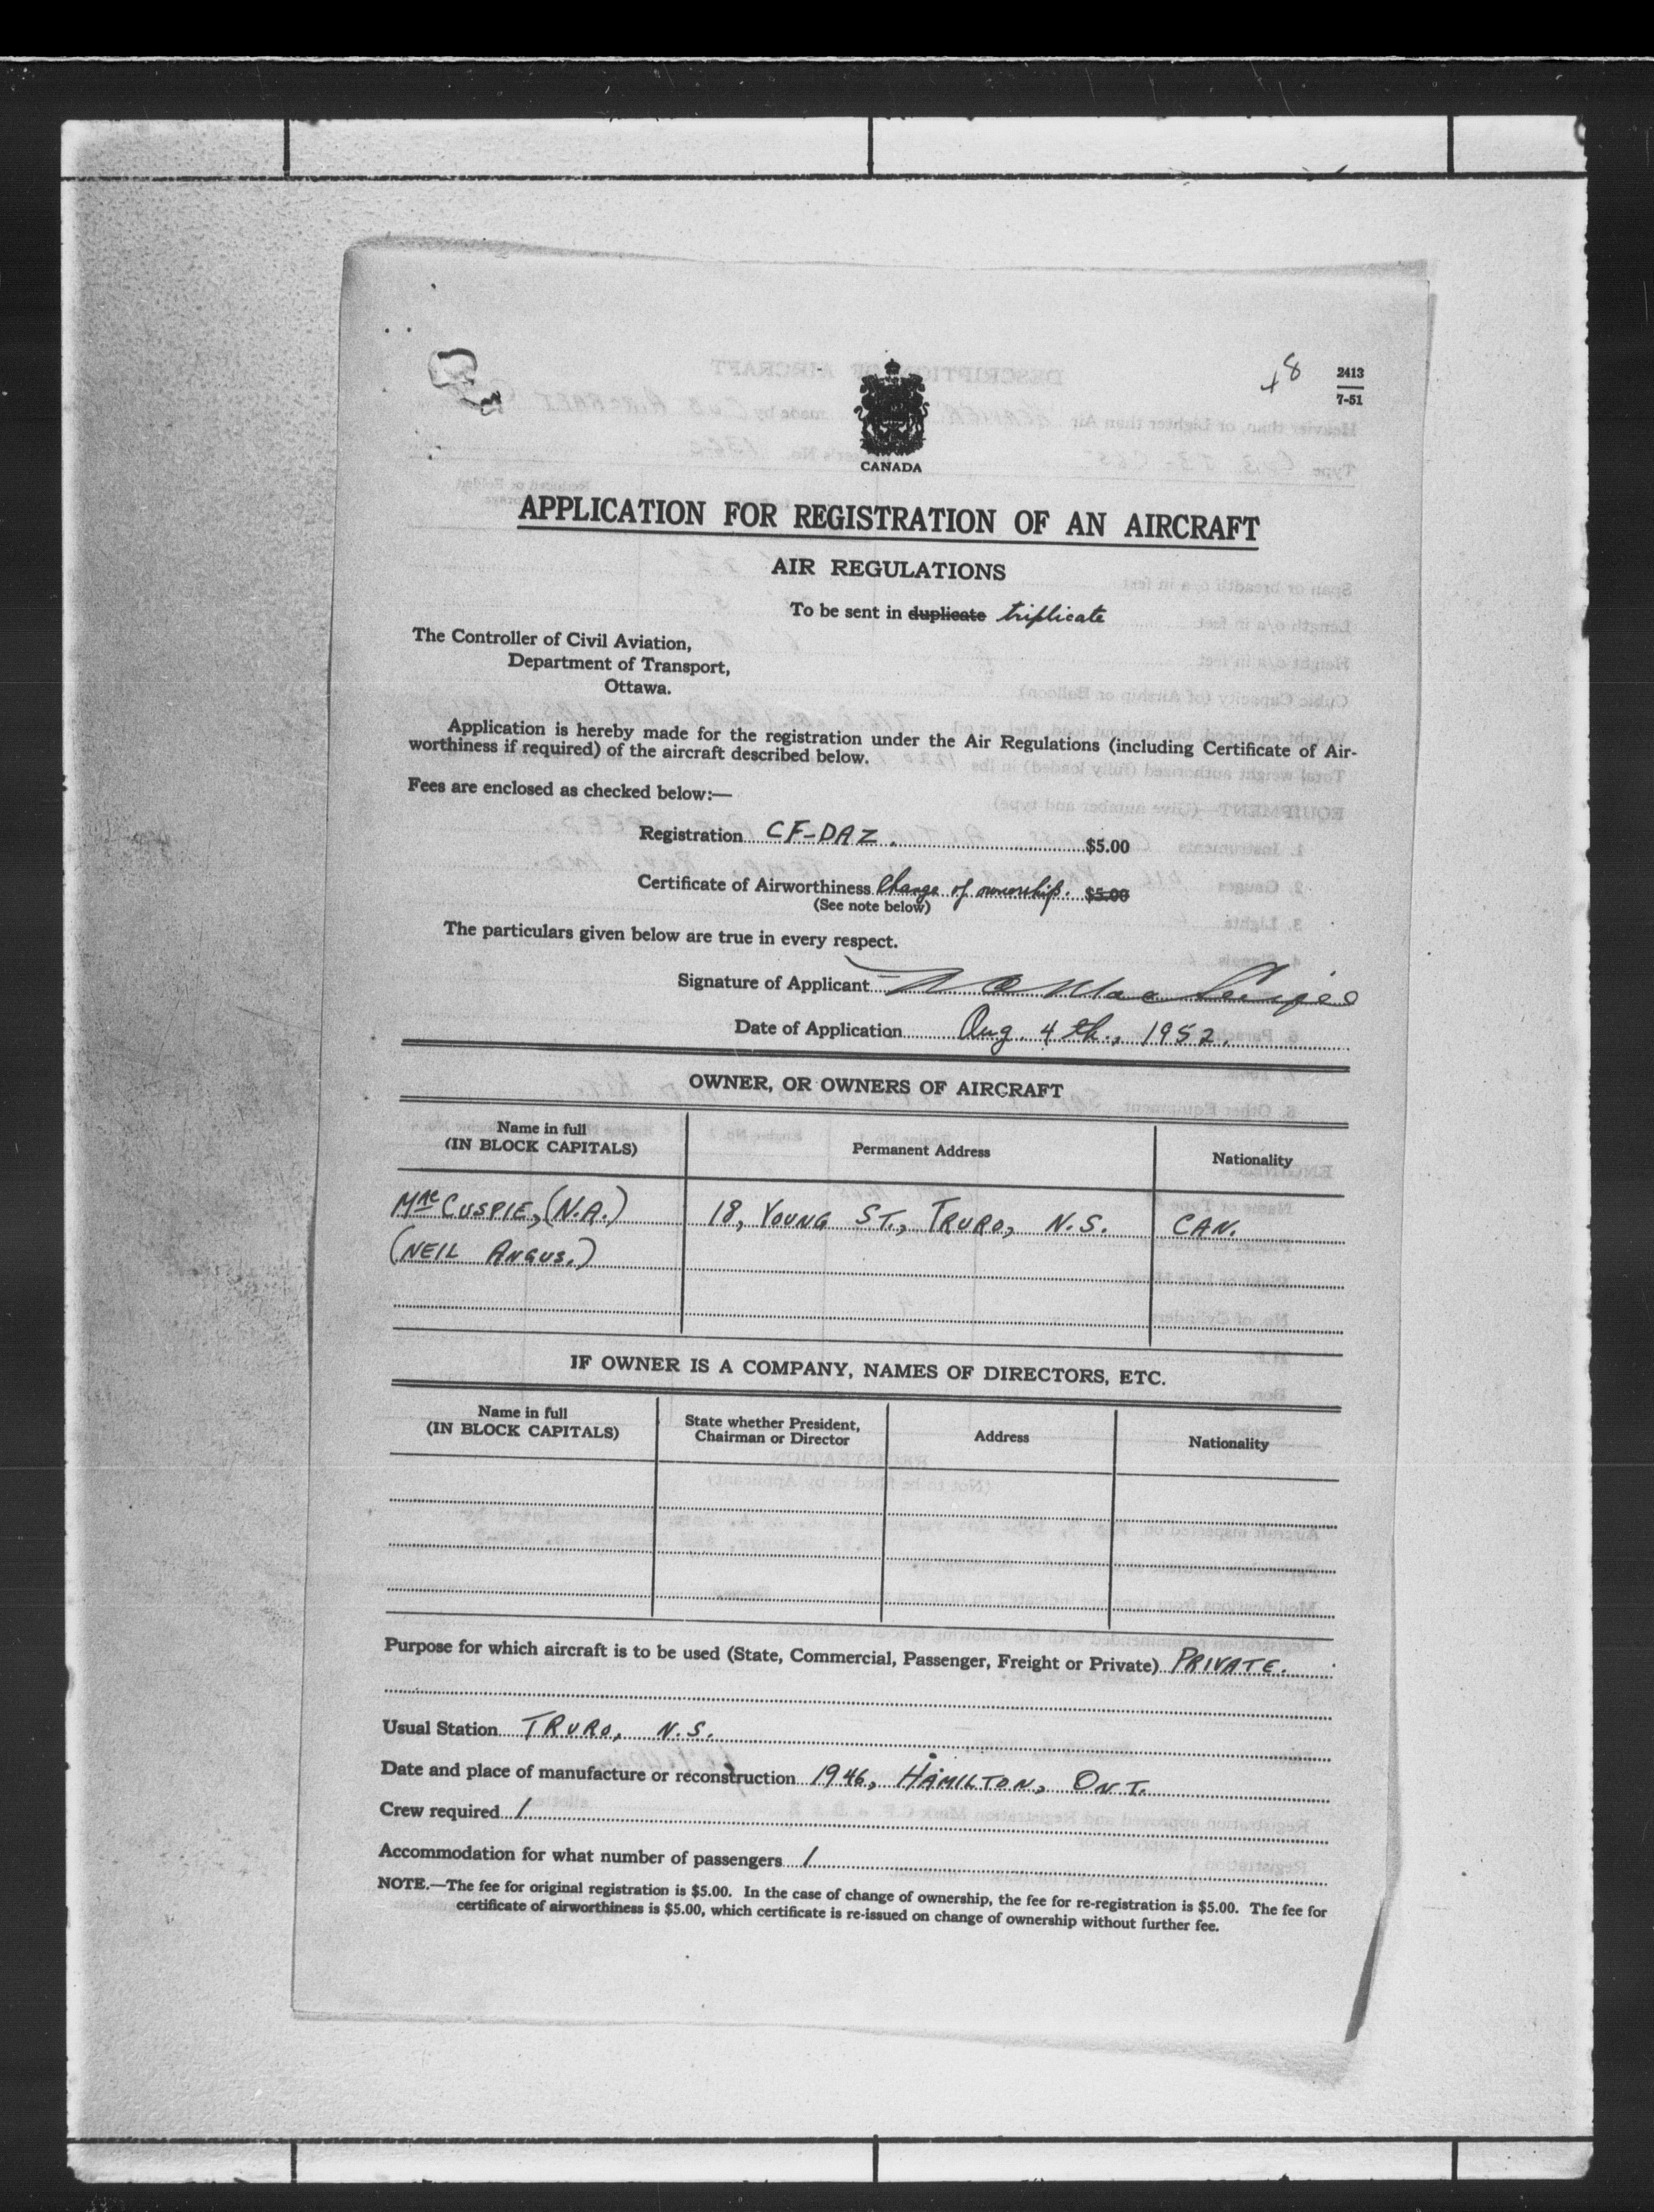 48
2413
7-51
CANADA
APPLICATION FOR REGISTRATION OF AN AIRCRAFT
AIR REGULATIONS
To be sent in duplicate triplicate
The Controller of Civil Aviation,
Department of Transport,
Ottawa.
Application is hereby made for the registration under the Air Regulations (including Certificate of Air-
worthiness if required) of the aircraft described below.
Fees are enclosed as checked below:—
Registration CF-DAZ. $5.00
Certificate of Airworthiness Change of ownership. $5.00
(See note below)
The particulars given below are true in every respect.
Signature of Applicant
Date of Application Aug. 4th., 1952.
OWNER, OR OWNERS OF AIRCRAFT
Name in full
(IN BLOCK CAPITALS) Permanent Address Nationality
MacCUSPIE, (N.A.) 18, YOUNG ST., TRURO, N.S. CAN.
(NEIL ANGUS.)
IF OWNER IS A COMPANY, NAMES OF DIRECTORS, ETC.
Name in full
(IN BLOCK CAPITALS) State whether President,
Chairman or Director Address Nationality
Purpose for which aircraft is to be used (State, Commercial, Passenger, Freight or Private) PRIVATE.
Usual Station TRURO, N.S.
Date and place of manufacture or reconstruction 1946, HAMILTON, ONT.
Crew required 1
Accommodation for what number of passengers 1
NOTE.—The fee for original registration is $5.00. In the case of change of ownership, the fee for re-registration is $5.00. The fee for
certificate of airworthiness is $5.00, which certificate is re-issued on change of ownership without further fee.